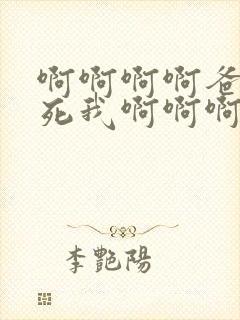 啊啊啊啊爸
死我啊啊啊
李艷陽